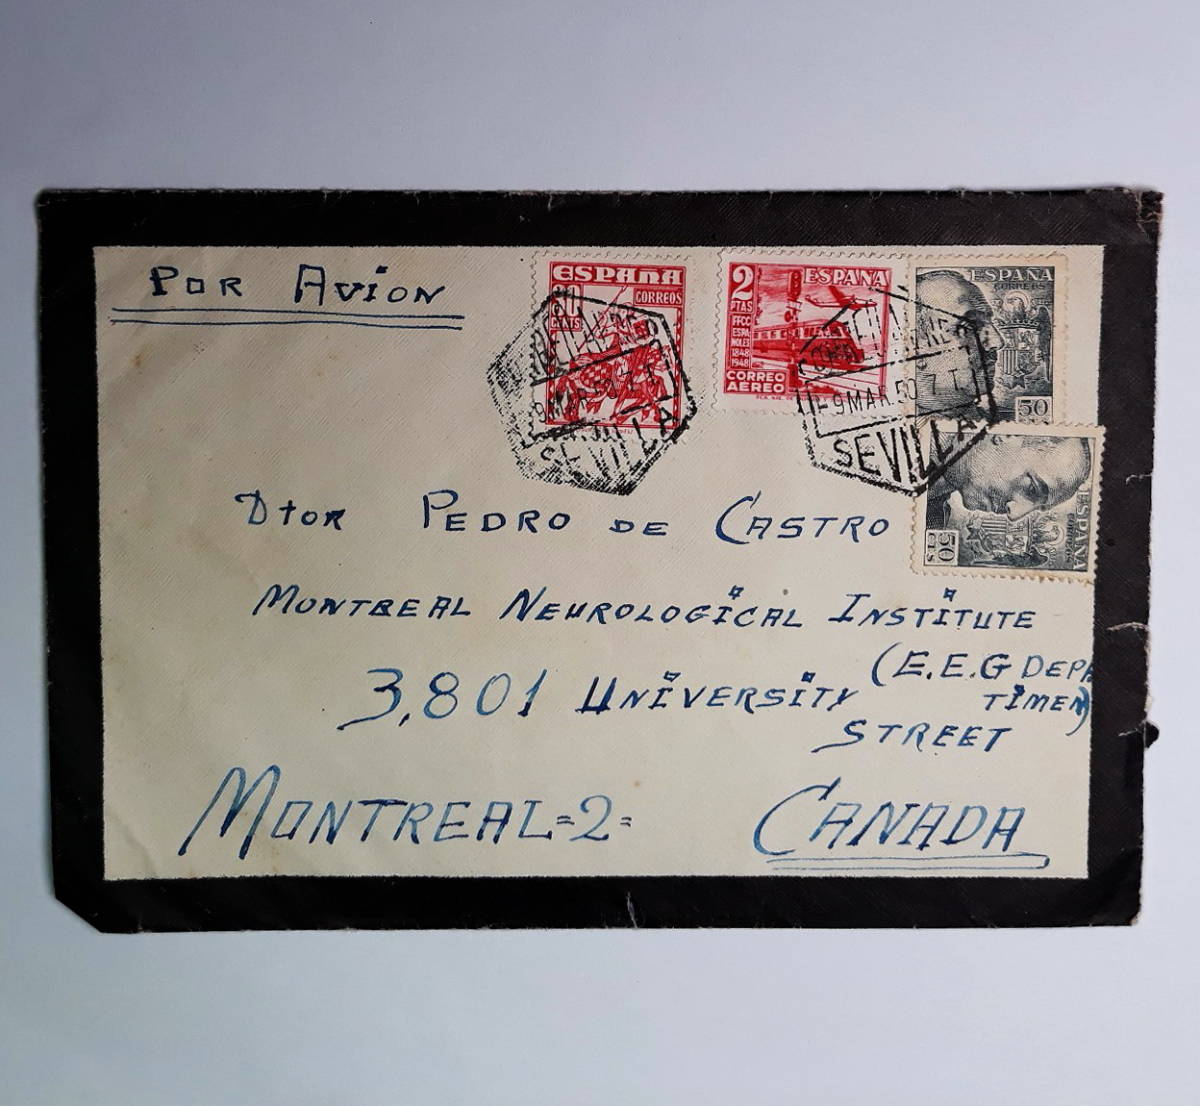 POR AVION
ESPAÑA
CORREOS
CENTS
2
PTAS
ESPAÑA
FFCC
ESPA
ÑOLES
1848
1948
CORREO
AEREO
ESPAÑA
CORREOS
50
9 MAR 50
SEVILLA
-9 MAR 50 7 T
SEVILLA
50
CTS
ESPAÑA
CORREOS
Dtor PEDRO DE CASTRO
MONTREAL NEUROLOGICAL INSTITUTE
(E.E.G DEPA
3,801 UNIVERSITY TIMEN)
STREET
MONTREAL=2= CANADA